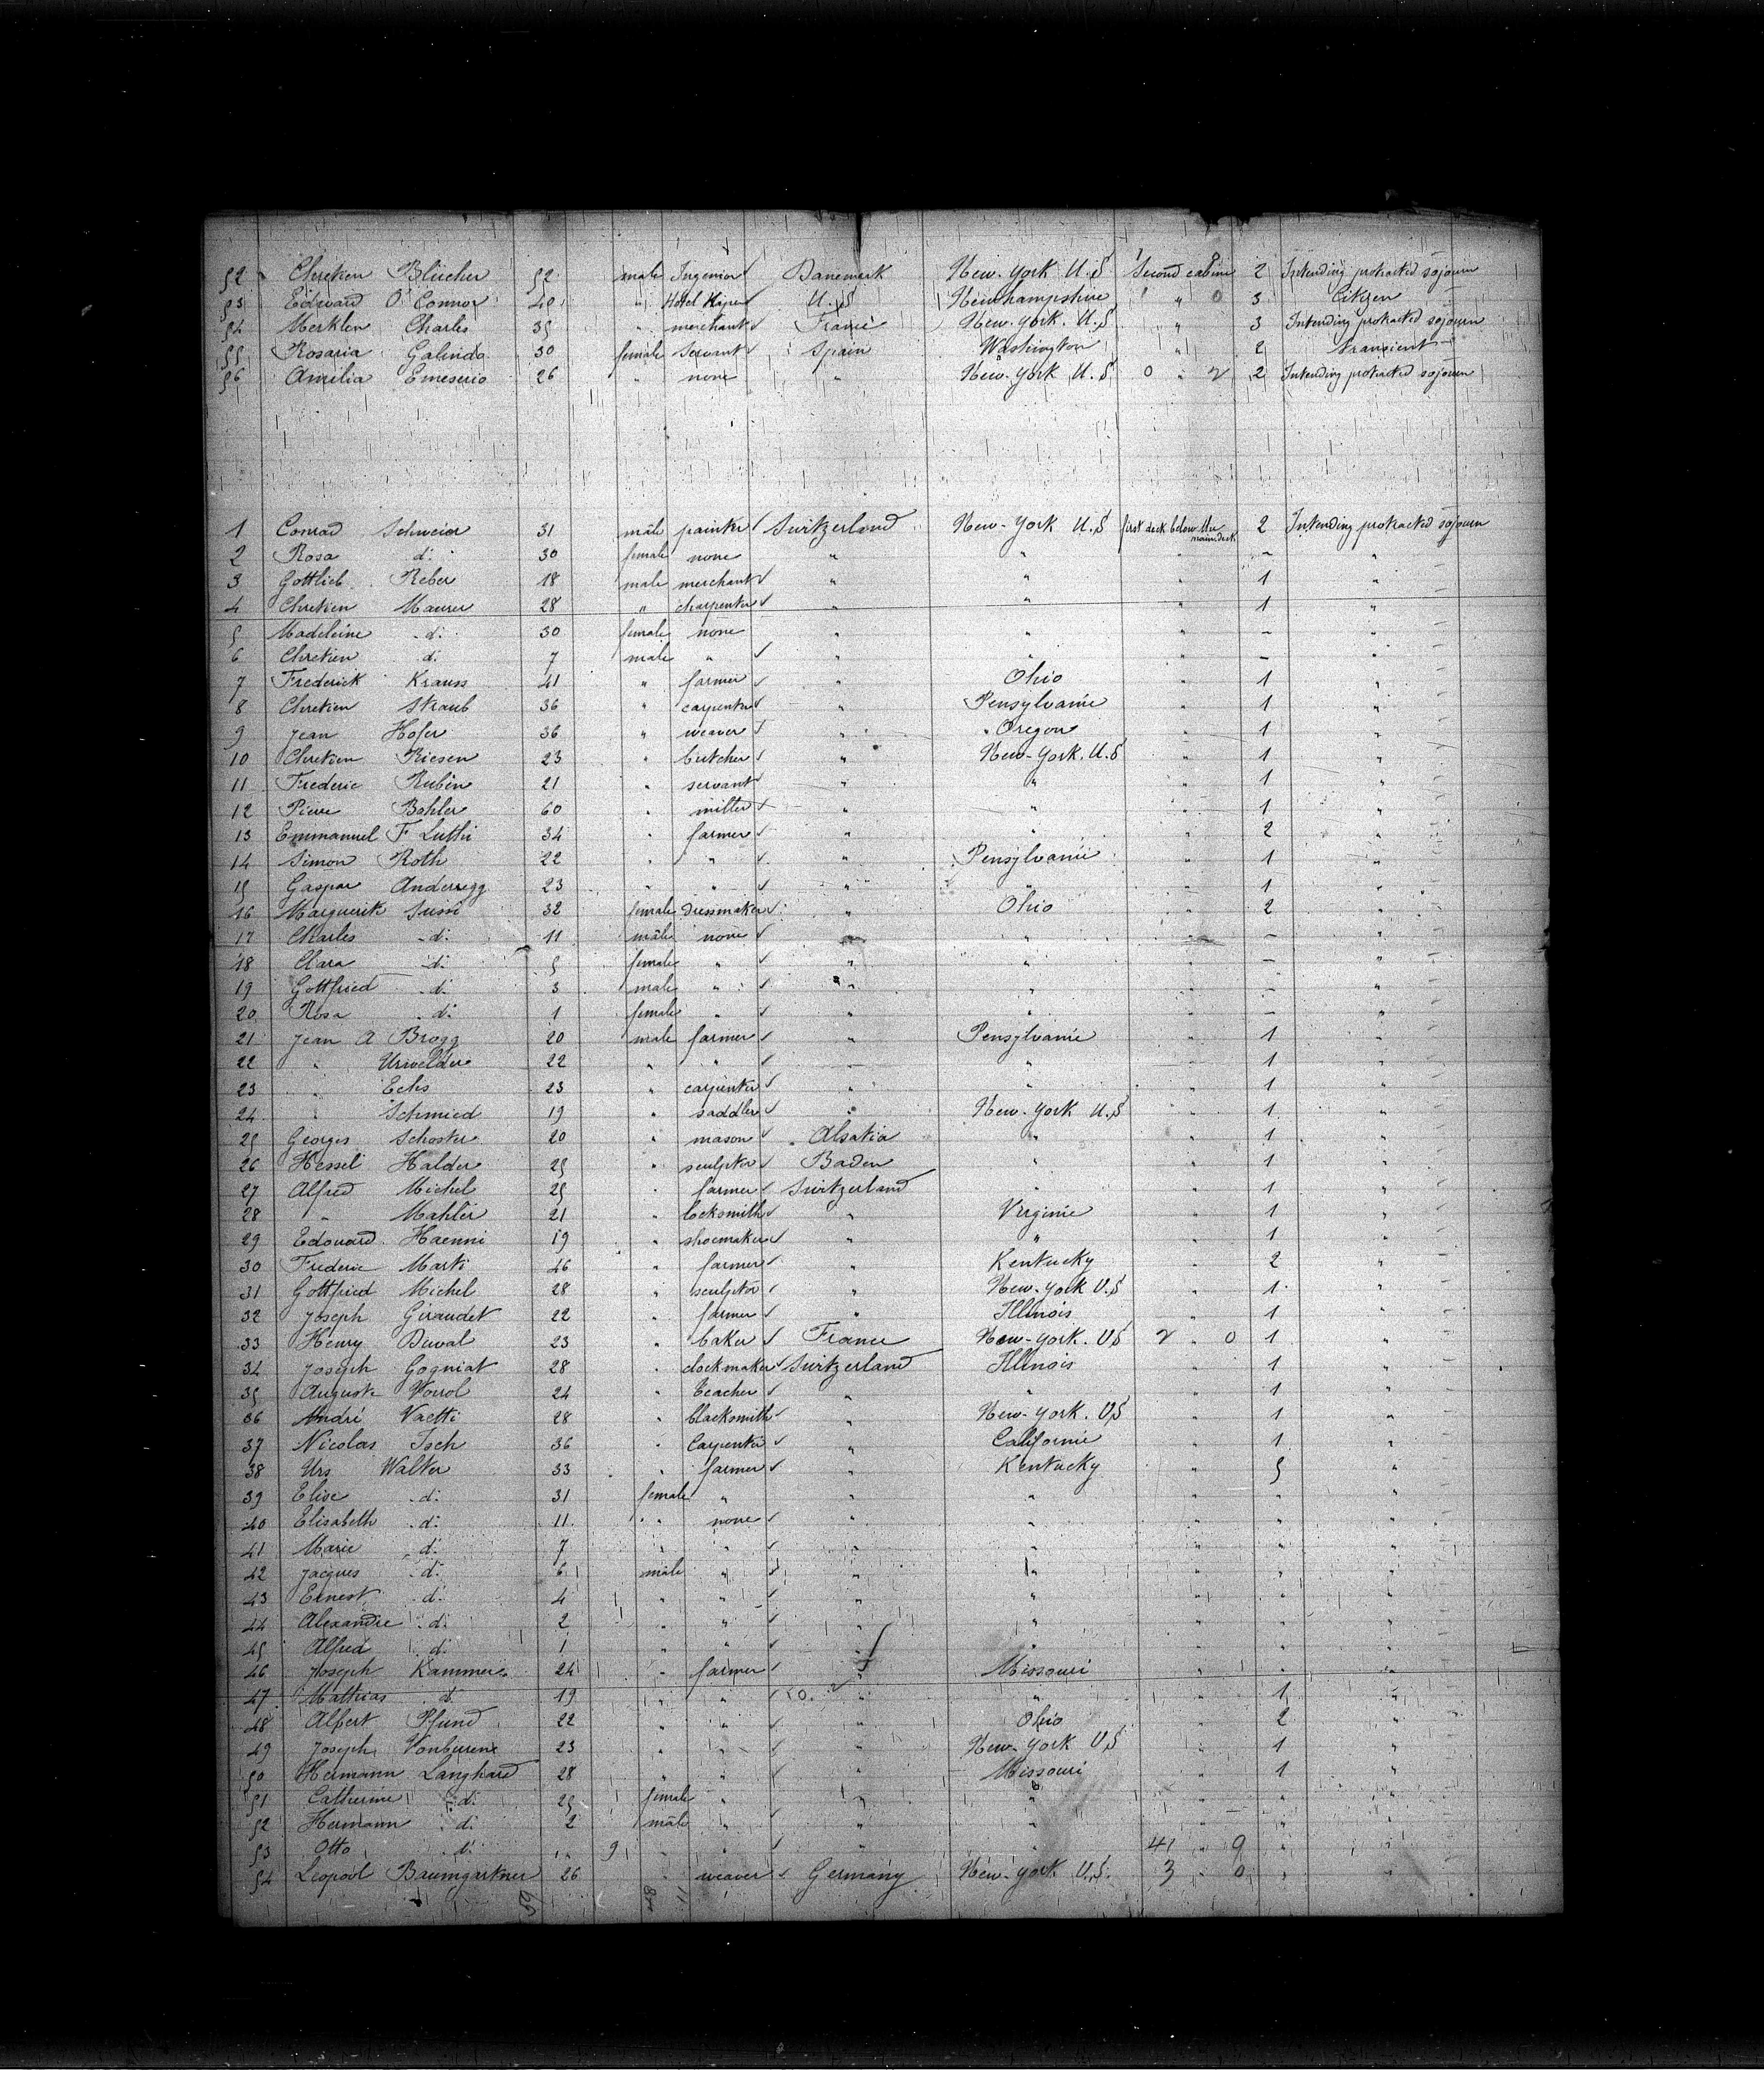 52 Chretien Blücher 52 male Ingenior Danemark New-York U.S Second cabine 2 Intending protracted sojourn
53 Edward O'Connor 40 " Hotel U.S Newhampshire " 0 3 Citizen
54 Merklen Charles 35 " merchant France New-York. U.S " 3 Intending protracted sojourn
55 Rosaria Galindo 30 female Servant Spain Washington " 2 transient
56 Amilia Emeserio 26 " none " New-York U.S 0 " 2 2 Intending protracted sojourn
1 Conrad Schweior 31 male painter Switzerland New-York U.S first deck below the main deck 2 Intending protracted sojourn
2 Rosa d: 30 female none " " " - "
3 Gottlieb Reber 18 male merchant " " " 1 "
4 Chretien Maurer 28 " charpenter " " " 1 "
5 Madeleine d: 30 female none " " " - "
6 Chretien d: 7 male " " " " - "
7 Frederick Krauss 41 " farmer " Ohio " 1 "
8 Chretien Straub 36 " carpenter " Pensylvanie " 1 "
9 Jean Hofer 36 " weaver " Oregon " 1 "
10 Chretien Riesen 23 " butcher " New-York. U.S " 1 "
11 Frederic Rubin 21 " servant " " " 1 "
12 Pierre Bahler 60 " miller " " " 1 "
13 Emmanuel F Luthi 34 " farmer " " " 2 "
14 Simon Roth 22 " " " Pensylvanie " 1 "
15 Gaspar Anderegg 23 " " " " " 1 "
16 Marguerite Sussi 32 female dressmaker " Ohio " 2 "
17 Charles d: 11 male none " " " - "
18 Clara d: 5 female " " " " - "
19 Gottfried d: 3 male " " " " - "
20 Rosa d: 1 female " " " " - "
21 Jean A Brogg 20 male farmer " Pensylvanie " 1 "
22 " Urwelder 22 " " " " " 1 "
23 " Echs 23 " carpenter " " " 1 "
24 " Schmied 19 " saddler " New-York U.S " 1 "
25 Georges Schoster 20 " mason Alsatia " " 1 "
26 Hessel Halder 25 " sculptor Baden " " 1 "
27 Alfred Michel 25 " farmer Switzerland " " 1 "
28 " Mahler 21 " locksmith " Virginie " 1 "
29 Edouard Haenni 19 " shoemaker " " " 1 "
30 Frederic Marti 46 " farmer " Kentucky " 2 "
31 Gottfried Michel 28 " sculptor " New-York U.S " 1 "
32 Joseph Giraudet 22 " farmer " Illinois " 1 "
33 Henry Duval 23 " baker France New-York. U.S 2 " 0 1 "
34 Joseph Gogniat 28 " clockmaker Switzerland Illinois " 1 "
35 Auguste Voirol 24 " teacher " " " 1 "
36 André Vaetti 28 " blacksmith " New-York. U.S " 1 "
37 Nicolas Isch 36 " Carpenter " Californie " 1 "
38 Urs Walter 33 " farmer " Kentucky " 5 "
39 Elise d: 31 female " " " " " "
40 Elisabeth d: 11 " none " " " " "
41 Marie d: 7 " " " " " " "
42 Jacques d: 6 male " " " " " "
43 Ernest d: 4 " " " " " " "
44 Alexandre d: 2 " " " " " " "
45 Alfred d: 1 " " " " " " "
46 Joseph Kammer 24 " farmer " Missouri " " "
47 Mathias d: 19 " " " " " 1 "
48 Albert Pfund 22 " " " Ohio " 2 "
49 Joseph Vonburene 23 " " " New-York U.S " 1 "
50 Hermann Langhard 28 " " " Missouri " 1 "
51 Catherine d: 25 female " " " " " "
52 Hermann d: 2 male " " " " " "
53 Otto d: 9 " " " " 41 " 9 " "
54 Leopold Baumgartner 26 " weaver Germany New-York U.S. 3 " 0 " "
59 11